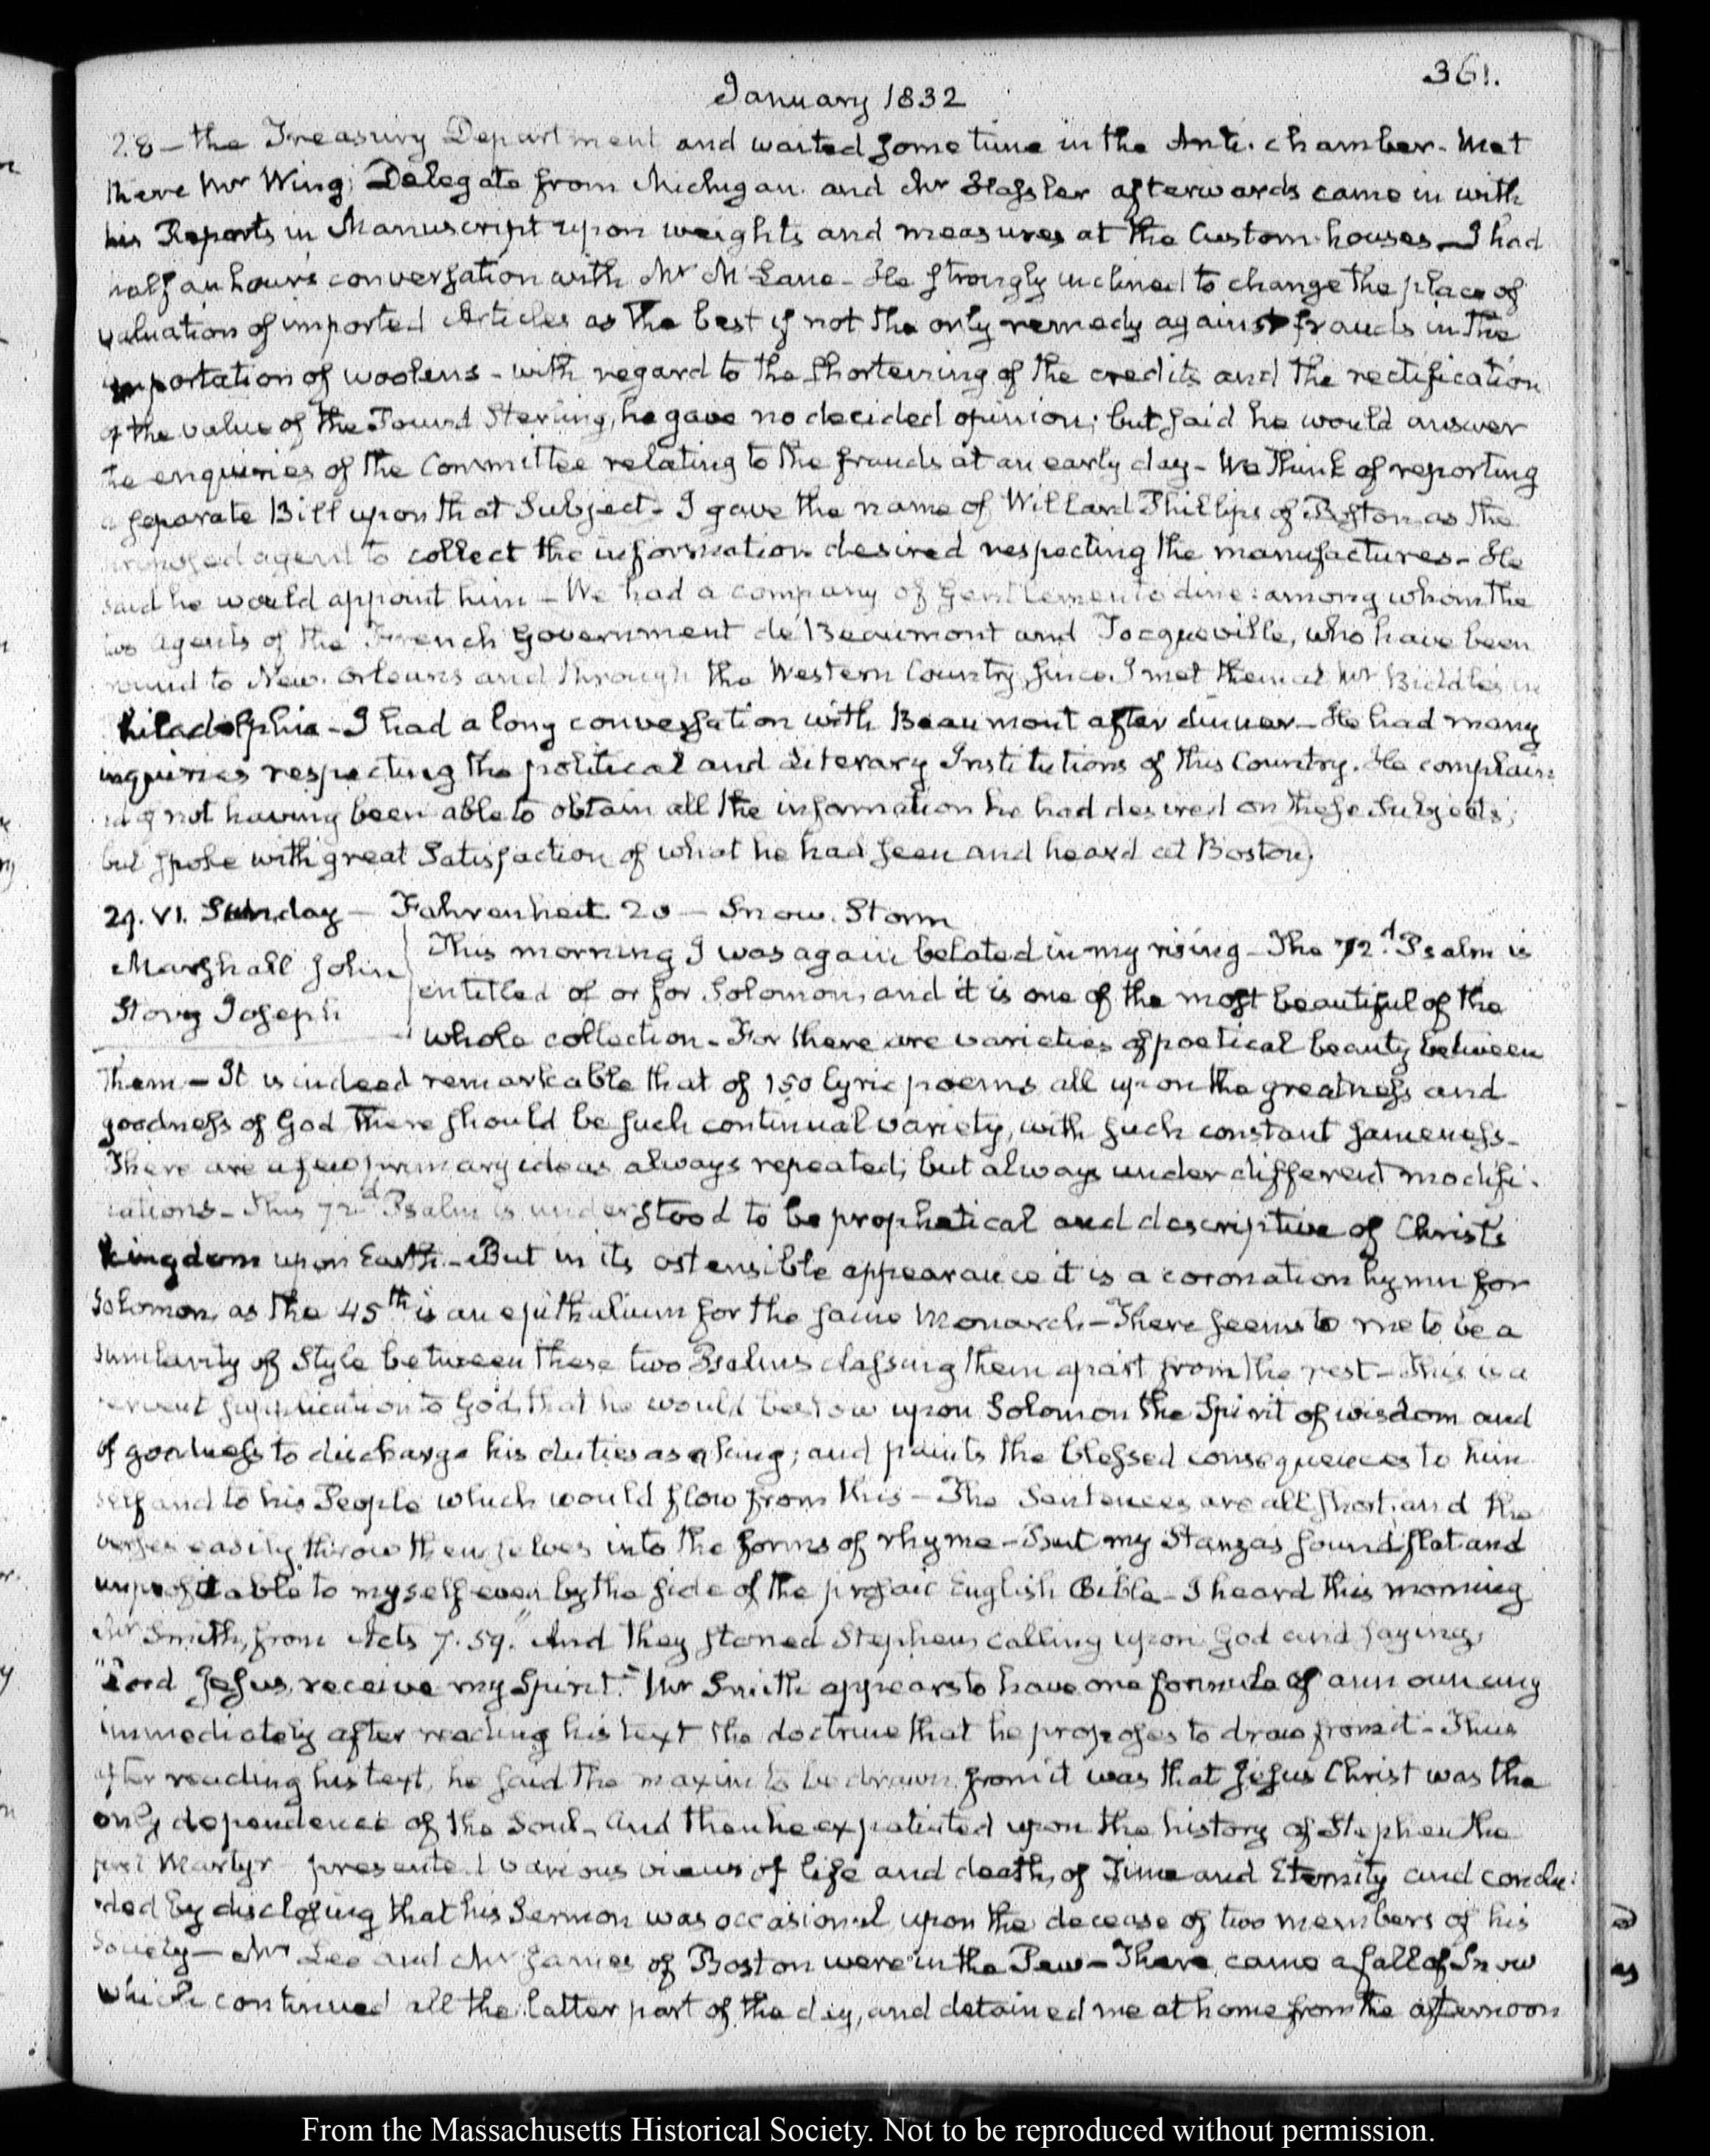 361.
January 1832
28 — the Treasury Department and waited some time in the Anti-chamber. Met
there Mr Wing, Delegate from Michigan. and Mr Hassler afterwards came in with
his Reports in Manuscript upon weights and measures at the Custom-houses — I had
half an hour's conversation with Mr McLane — He strongly inclined to change the place of
valuation of imported Articles as the best if not the only remedy against frauds in the
importation of woolens — with regard to the shortening of the credits and the rectification
of the value of the Pound Sterling, he gave no decided opinion; but said he would answer
the enquiries of the Committee relating to the frauds at an early day — We think of reporting
a separate Bill upon that Subject — I gave the name of Willard Phillips of Boston as the
proposed agent to collect the information desired respecting the manufactures — He
said he would appoint him — We had a company of Gentlemen to dine: among whom the
two Agents of the French Government de Beaumont and Tocqueville, who have been
round to New-Orleans and through the Western Country, since I met them at Mr Biddle's in
Philadelphia — I had a long conversation with Beaumont after dinner — He had many
inquiries respecting the political and Literary Institutions of this Country. He complain:
ed of not having been able to obtain all the information he had desired on these Subjects;
but spoke with great Satisfaction of what he had seen and heard at Boston.
29. VI. Sunday — Fahrenheit 20 — Snow. Storm
Marshall John
Story Joseph
This morning I was again belated in my rising — The 72.d Psalm is
entitled of or for Solomon, and it is one of the most beautiful of the
whole collection — For there are varieties of poetical beauty between
them — It is indeed remarkable that of 150 lyric poems all upon the greatness and
goodness of God there should be such continual variety, with such constant sameness —
There are a few primary ideas always repeated; but always under different modifi-
cations — This 72d Psalm is understood to be prophetical and descriptive of Christ's
kingdom upon Earth — But in its ostensible appearance it is a coronation hymn for
Solomon, as the 45th is an epithalium for the same Monarch — There seems to me to be a
similarity of Style between these two Psalms classing them apart from the rest — This is a
fervent supplication to God, that he would bestow upon Solomon the Spirit of wisdom and
of goodness to discharge his duties as a king; and paints the blessed consequences to him
self and to his People which would flow from this — The Sentences are all short, and the
verses easily throw themselves into the forms of rhyme — But my Stanzas sound flat and
unprofitable to myself even by the side of the prosaic English Bible — I heard this morning
Mr Smith, from Acts 7. 59. "And they stoned Stephen, calling upon God and saying,
"Lord Jesus, receive my Spirit." Mr Smith appears to have one formula of announcing
immediately after reading his text the doctrine that he proposes to draw from it — Thus
after reading his text, he said the maxim to be drawn from it was that Jesus Christ was the
only dependence of the Soul — And then he expatiated upon the history of Stephen the
first Martyr — presented various views of life and death, of Time and Eternity and conclu:
ded by disclosing that his Sermon was occasional, upon the decease of two members of his
Society — Mr Lee and Mr James of Boston were in the Pew — There came a fall of Snow
which continued all the latter part of the day, and detained me at home from the afternoon
From the Massachusetts Historical Society. Not to be reproduced without permission.